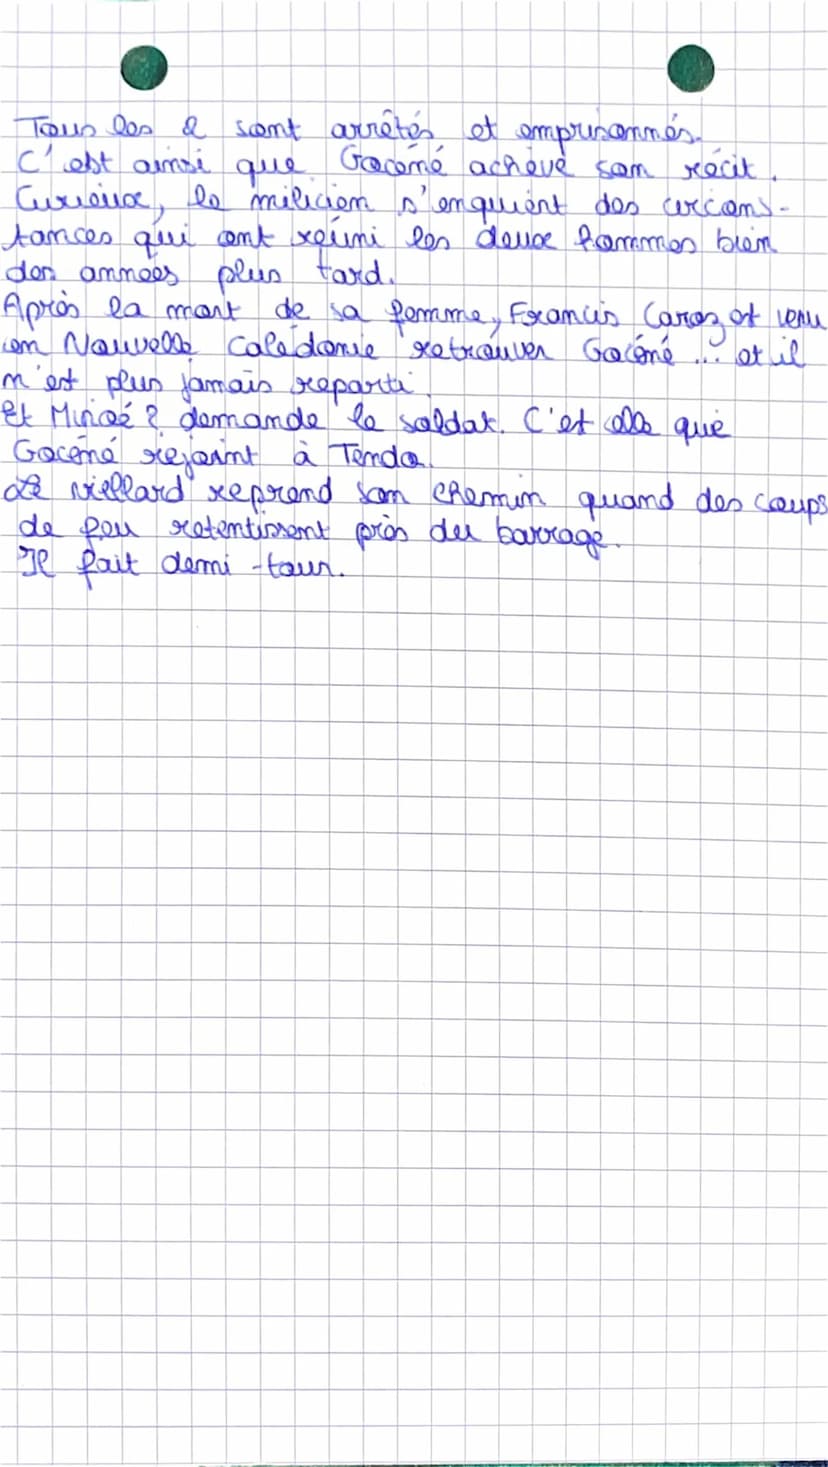 Tous les 2 sont arrêtés et emprisonnés.
C'est ainsi que Gocéné achève son récit.
Curieux, le milicien s'enquiert des circons-
tances qui ont réuni les deux hommes bien
des années plus tard.
Après la mort de sa femme, Francis Caroz et venu
en Nouvelle Calédonie retrouver Gocéné... et il
n'est plus jamais reparti.
Et Minoé ? demande le soldat. C'et elle que
Gocéné rejoint à Tendo.
Le viellard reprend son chemin quand des coups
de feu retentissent près du barrage.
Il fait demi-tour.